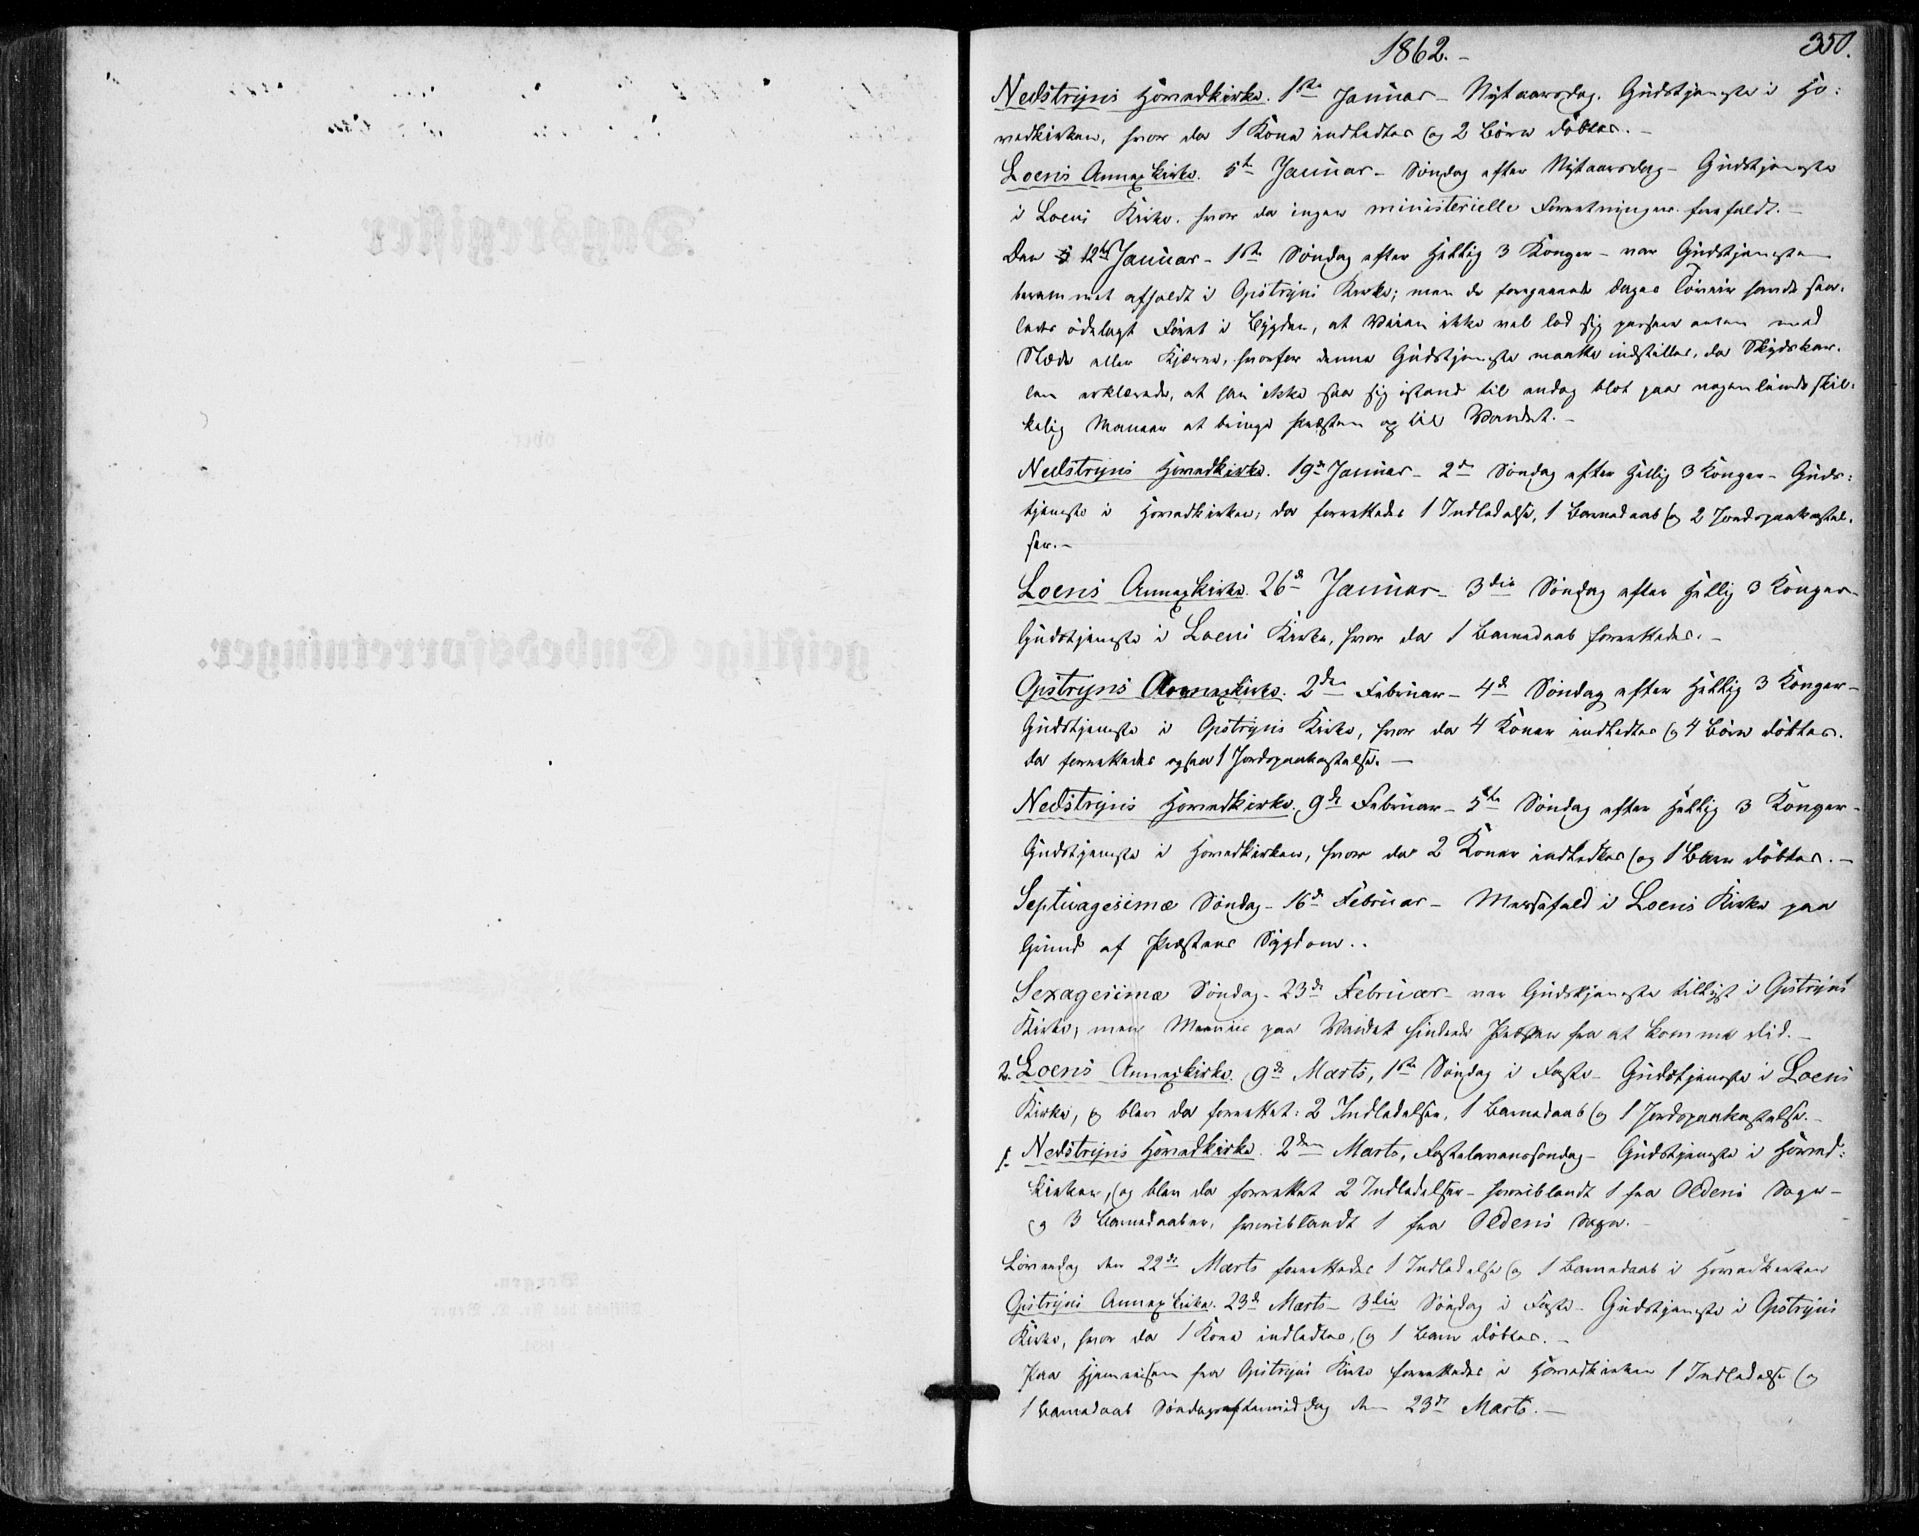 1862.- 350.
Nedstryns Hovedkirke. 1ste Januar - Nytaarsdag. Gudstjeneste i Ho:
vedkirken, hvor da 1 Kone indledtes og 2 Børn døbtes. -
Loens Annexkirke. 5te Januar - Søndag efter Nytaarsdag - Gudstjeneste
i Loens Kirke, hvor da ingen ministerielle Forretninger forefaldt. -
Den 12te Januar - 1ste Søndag efter Hellig 3 Konger - var Gudstjenesten
berammet afholdt i Opstryns Kirke; men de foregaaende Dages Tøveir havde saa:
ledes ødelagt Føret i Bygden, at Veien ikke vel lod sig passere enten med
Slæde eller Kjærre, hvorfor denne Gudstjeneste maatte indstilles, da Skydskar:
len erklærede, at han ikke saa sig istand til endog blot paa nogenlunde skik:
kelig Maneer at bringe Præsten op til Vandet. -
Nedstryns Hovedkirke. 19de Januar - 2den Søndag efter Hellig 3 Konger - Guds:
tjeneste i Hovedkirken; da forrettedes 1 Indledelse, 1 Barnedaab og 2 Jordspaakastel:
ser. -
Loens Annexkirke. 26de Januar - 3die Søndag efter Hellig 3 Konger -
Gudstjeneste i Loens Kirke, hvor da 1 Barnedaab forrettedes. -
Opstryns Annexkirke. 2den Februar - 4de Søndag efter Hellig 3 Konger -
Gudstjeneste i Opstryns Kirke, hvor da 4 Koner indledtes og 4 Børn døbtes.
da forrettedes ogsaa 1 Jordspaakastelse. -
Nedstryns Hovedkirke. 9de Februar - 5te Søndag efter Hellig 3 Konger -
Gudstjeneste i Hovedkirken, hvor da 2 Koner indledtes og 1 Barn døbtes. -
Septuagesimæ Søndag - 16de Februar - Messefald i Loens Kirke paa
Grund af Præstens Sygdom. .
Sexagesimæ Søndag - 23de Februar - var Gudstjeneste tillyst i Opstryns
Kirke; men paa Vandet hindrede Præsten fra at komme did. -
2. Loens Annexkirke. 9de Marts, 1ste Søndag i Faste - Gudstjeneste i Loens
Kirke, og blev da forrettet: 2 Indledelser, 1 Barnedaab og 1 Jordspaakastelse. -
1. Nedstryns Hovedkirke. 2den Marts, Fastelavnssøndag - Gudstjeneste i Hoved:
kirken, og blev da forrettet 2 Indledelser - hvoriblandt 1 fra Oldens Sogn -
og 3 Barnedaaber, hvoriblandt 1 fra Oldens Sogn. -
Løverdag den 22de Marts forrettedes 1 Indledelse og 1 Barnedaab i Hovedkirken
Opstryns Annexkirke. 23de Marts - 3die Søndag i Faste - Gudstjeneste i Opstryns
Kirke, hvor da 1 Kone indledtes, og 1 Barn døbtes. -
Paa Hjemreisen fra Opstryns Kirke forrettedes i Hovedkirken 1 Indledelse og
1 Barnedaab Søndagseftermiddag den 23de Marts. -